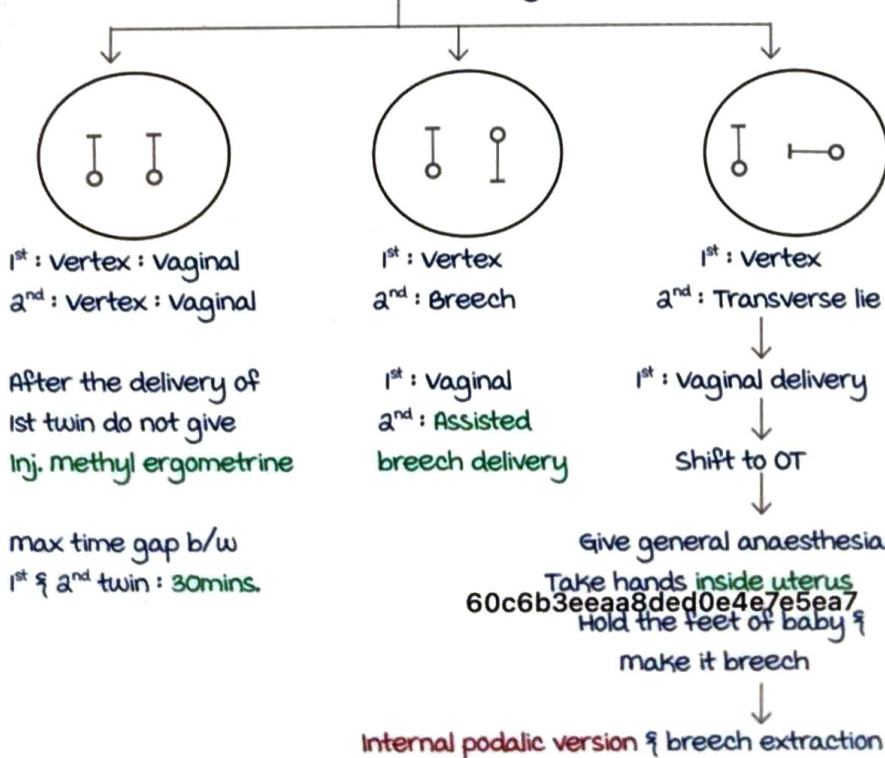 1st : Vertex : Vaginal
2nd : Vertex : Vaginal
After the delivery of
1st twin do not give
Inj. methyl ergometrine
max time gap b/w
1st & 2nd twin : 30mins.
1st : Vertex
2nd : Breech
1st : Vaginal
2nd : Assisted
breech delivery
1st : Vertex
2nd : Transverse lie
1st : Vaginal delivery
Shift to OT
Give general anaesthesia
Take hands inside uterus
60c6b3eeaa8ded0e4e7e5ea7
Hold the feet of baby &
make it breech
Internal podalic version & breech extraction